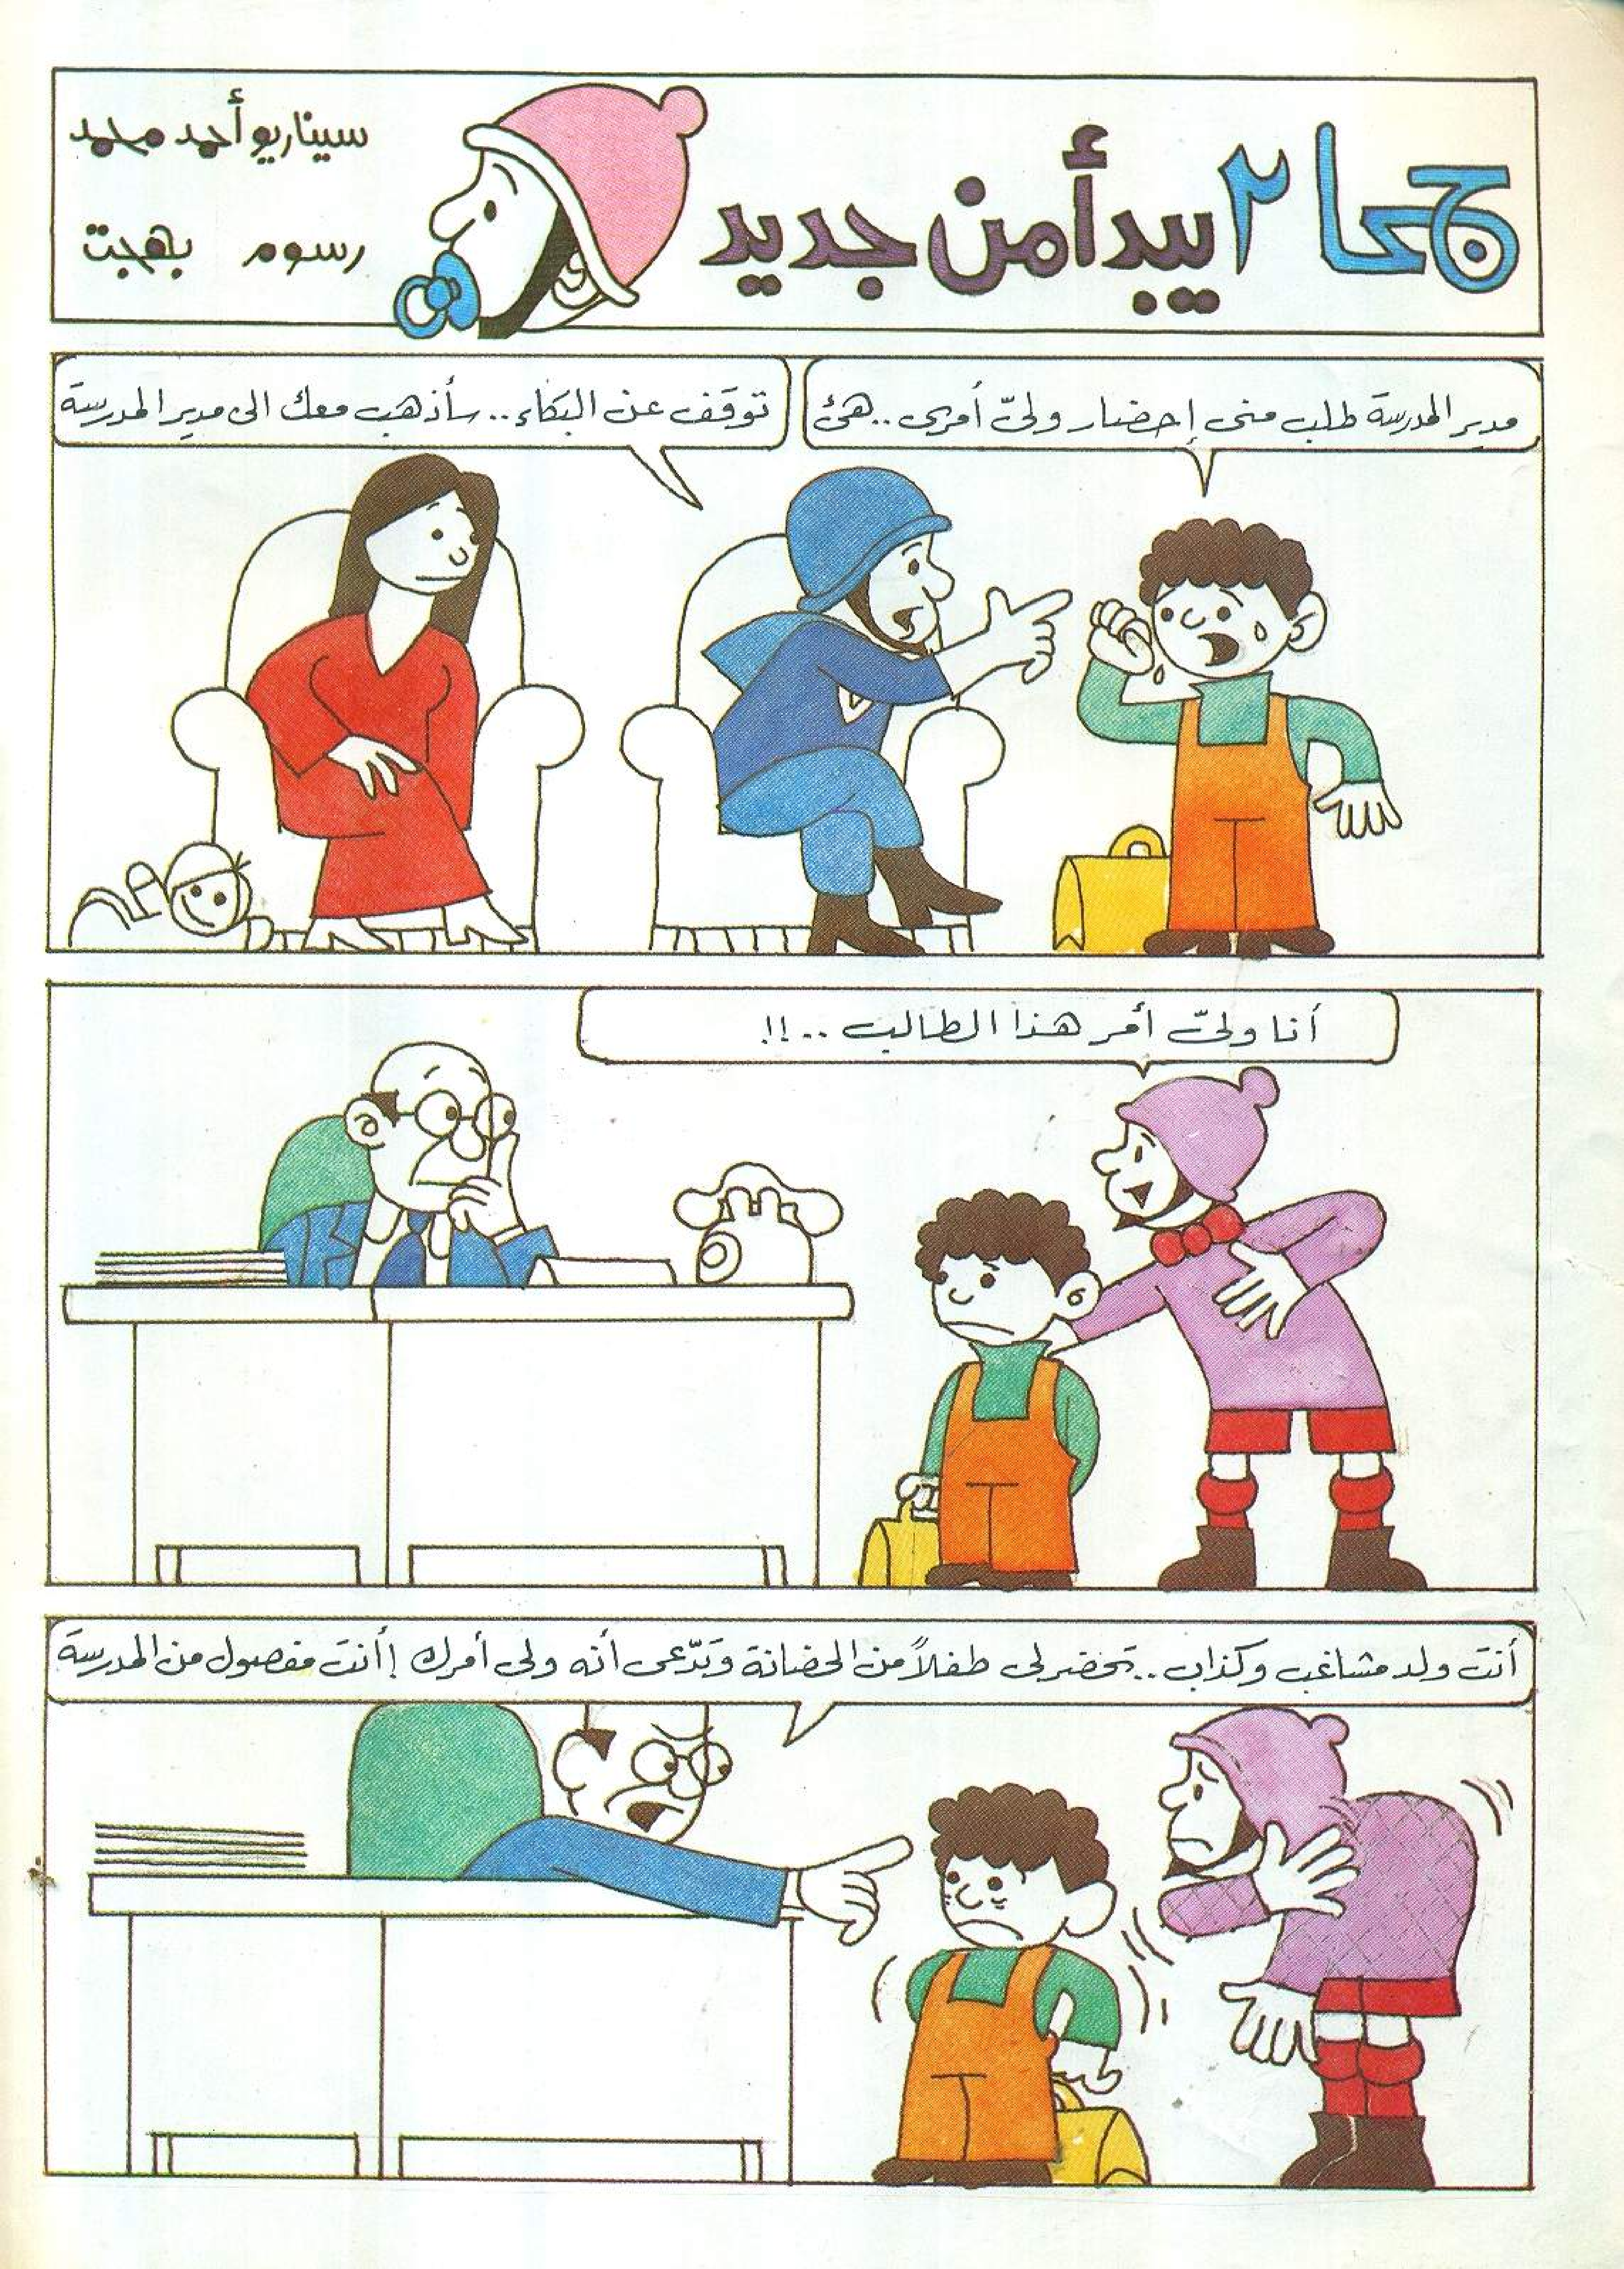 جحا ٢ يبدأ من جديد
سيناريو أحمد محمد
رسوم بهجت
مدير المدرسة طلب منى إحضار ولىّ أمرى .. هئ
توقف عن البكاء .. سأذهب معك الى مدير المدرسة
أنا ولىّ أمر هذا الطالب .. !!
أنت ولد مشاغب وكذاب .. تحضر لى طفلاً من الحضانة وتدّعى أنه ولى أمرك ! أنت مفصول من المدرسة